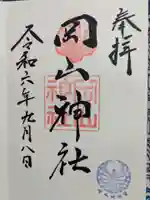 奉拝
岡山神社
令和六年九月八日